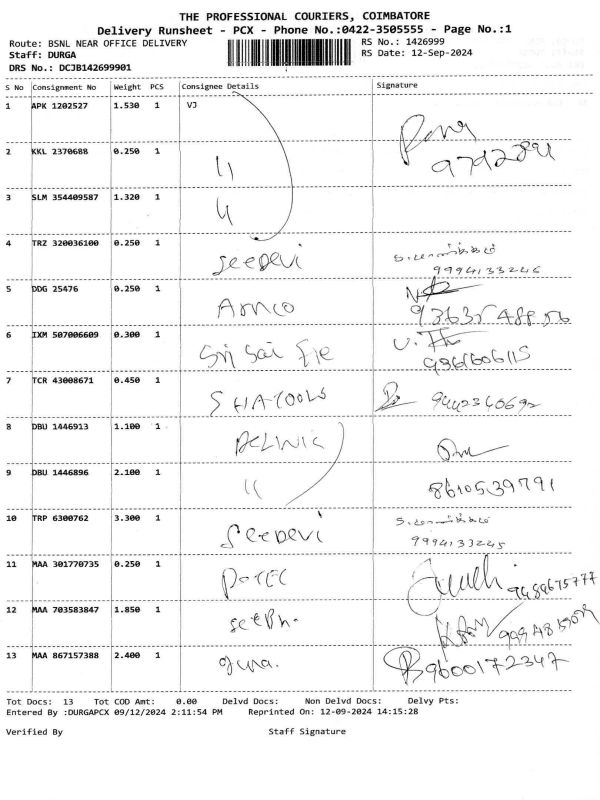 THE PROFESSIONAL COURIERS, COIMBATORE
Delivery Runsheet - PCX - Phone No.:0422-3505555 - Page No.:1
Route: BSNL NEAR OFFICE DELIVERY RS No.: 1426999
Staff: DURGA RS Date: 12-Sep-2024
DRS No.: DCJB142699901
S No Consignment No Weight PCS Consignee Details Signature
1 APK 1202527 1.530 1 VJ
2 KKL 2370688 0.250 1 11
3 SLM 354409587 1.320 1
4 TRZ 320036100 0.250 1 SeeDevi
9994133245
5 DDG 25476 0.250 1 Amco
6 IXM 507006609 0.300 1 Sri Sai
7 TCR 43008671 0.450 1 SHATOOLS 9442340692
8 DBU 1446913 1.100 1
9 DBU 1446896 2.100 1 11 8610539791
10 TRP 6300762 3.300 1 SeeDevi
9994133245
11 MAA 301770735 0.250 1
12 MAA 703583847 1.850 1
13 MAA 867157388 2.400 1 9600172347
Tot Docs: 13 Tot COD Amt: 0.00 Delvd Docs: Non Delvd Docs: Delvy Pts:
Entered By :DURGAPCX 09/12/2024 2:11:54 PM Reprinted On: 12-09-2024 14:15:28
Verified By Staff Signature